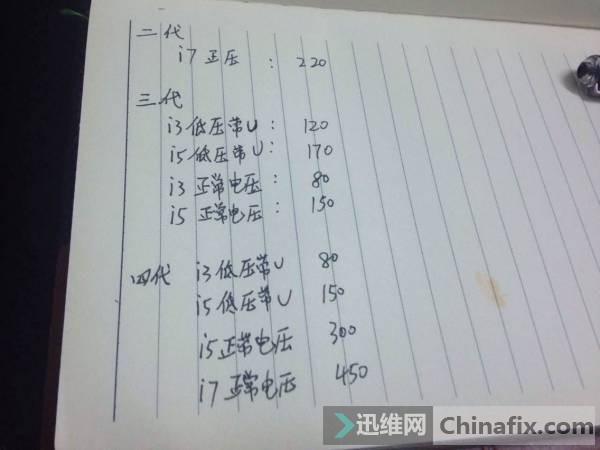 二代
i7 正压 : 220
三代
i3 低压带U : 120
i5 低压带U : 170
i3 正常电压 : 80
i5 正常电压 : 150
四代 i3 低压带U 80
i5 低压带U 150
i5 正常电压 300
i7 正常电压 450
迅维网 Chinafix.com